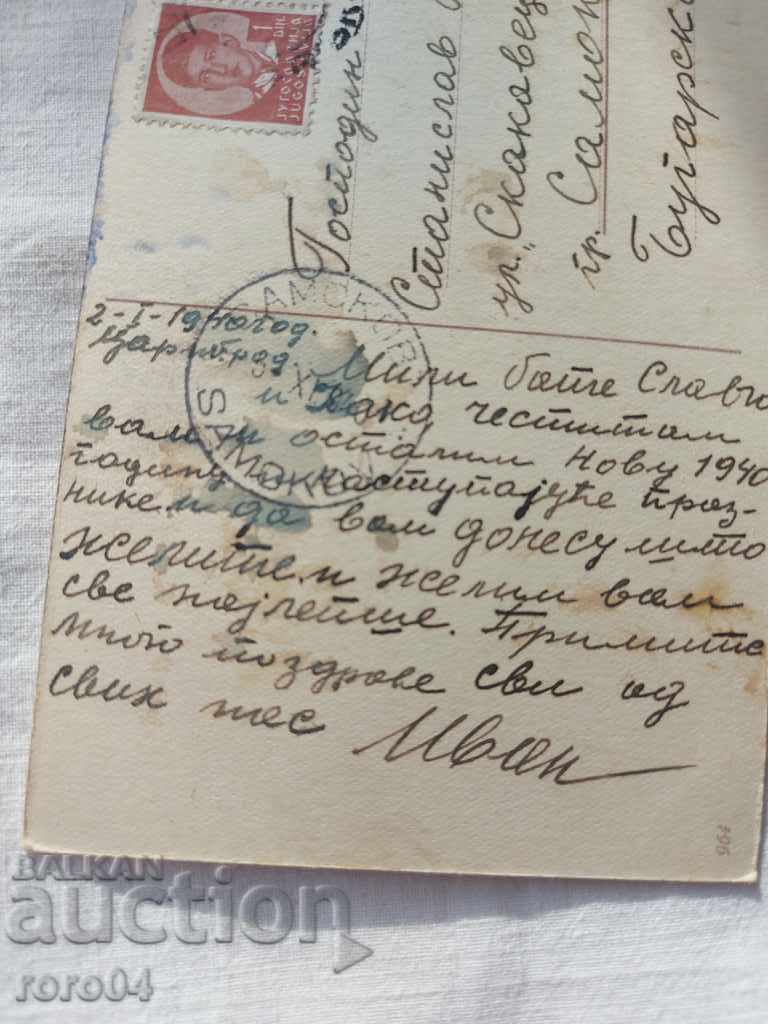 1 ДИН
ЈУГОСЛАВИЈА
JUGOSLAVIJA
Господин
Станислав
ул. „Скаковец
гр. Самок
Бугарск
SAMOKOV
2-I-1940 год.
Цариброд. Мили бате Славч
и честитам
вам и осталим Нову 1940
годину и наступајуће праз-
нике и да вам донесу што
желите и желим вам
све најлепше. Примите
много поздраве сви од
свих нас Иван
964
BALKAN
auction
roro04